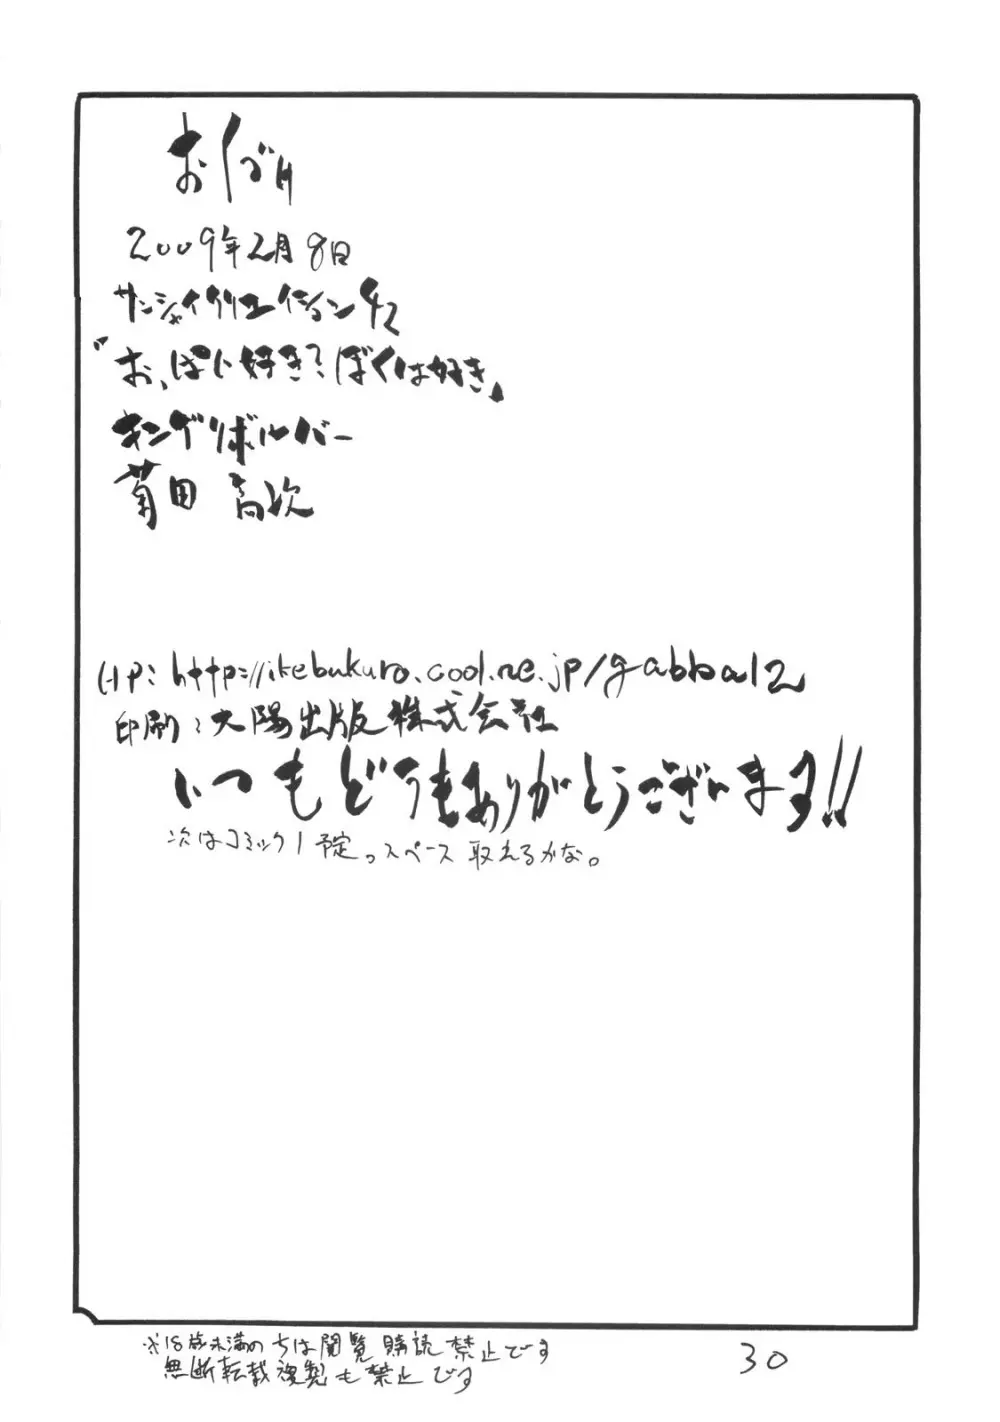 おくづけ
2009年2月8日
サンシャイクリエイション42
「おっぱい好き?ぼくは好き」
キングリボルバー
菊田 高次
HP:http://ikebukuro.cool.ne.jp/gabba12
印刷:大陽出版株式会社
いつもどうもありがとうございます!!
次はコミック1予定。スペース取れるかな。
※18歳未満のちは閲覧購読禁止です
無断転載複製も禁止です
30